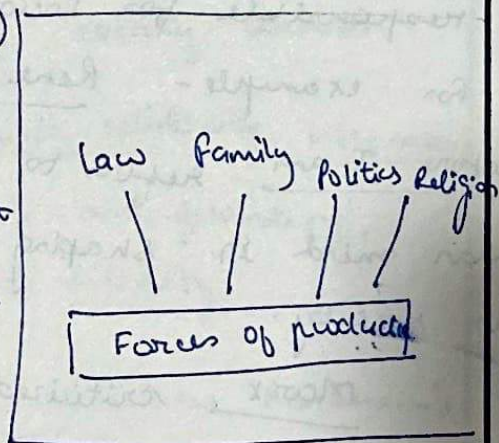 Law Family Politics Religion
Forces of production